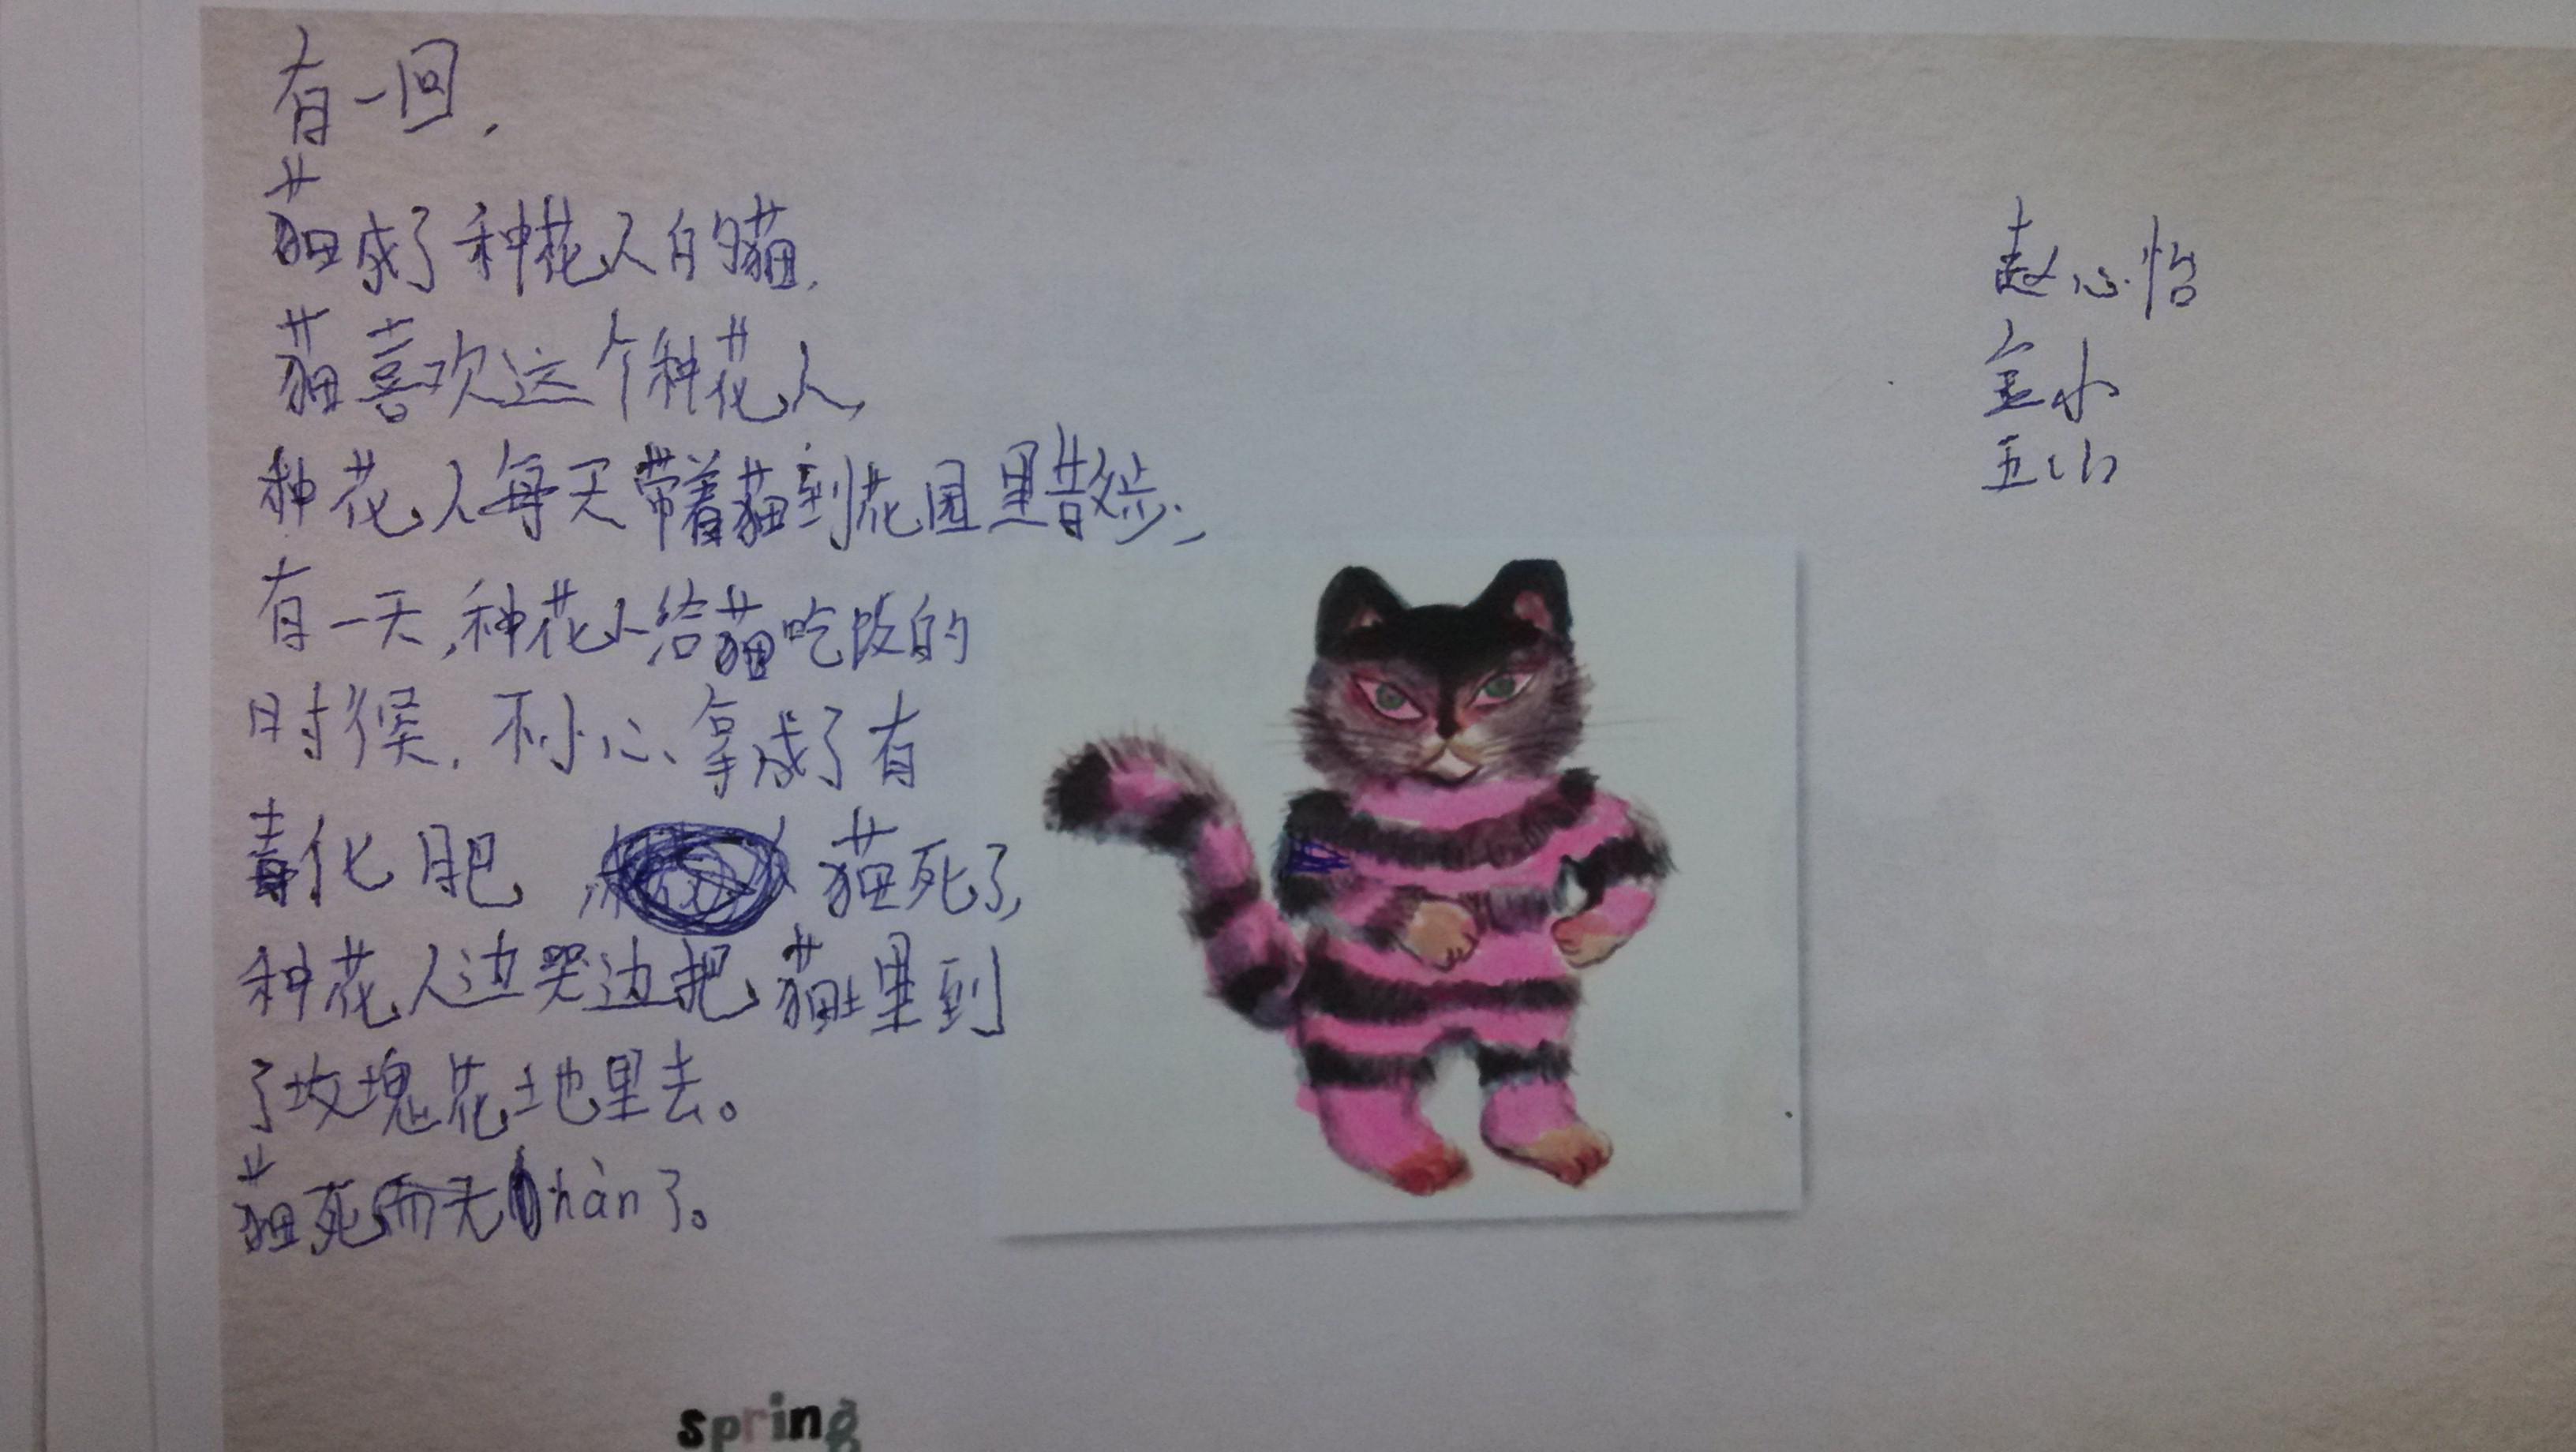 有一回,
猫成了种花人的猫,
猫喜欢这个种花人,
种花人每天带着猫到花园里散步,
有一天,种花人给猫吃饭的
时候,不小心拿成了有
毒化肥,猫死了,
种花人边哭边把猫埋到
了玫瑰花土地里去。
猫死而无hàn了。
赵心怡
金小
五(1)
spring